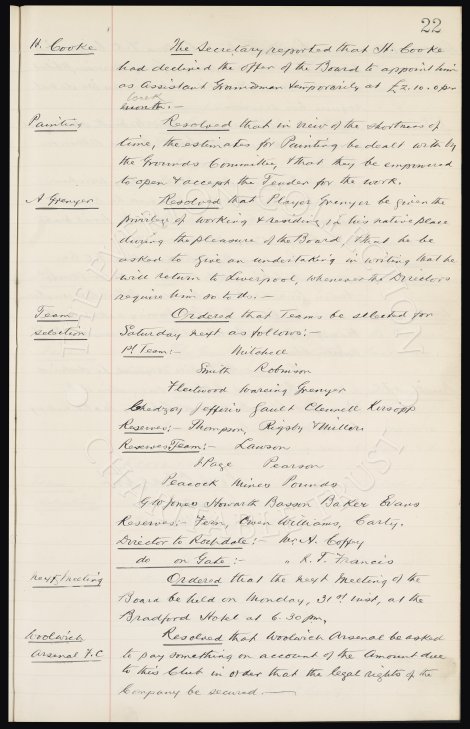 22
H. Cooke The Secretary reported that H. Cooke
had declined the offer of the Board to appoint him
as Assistant Groundsman temporarily at £2.10.0 per
week
month.-
Painting Resolved that in view of the shortness of
time, the estimates for Painting be dealt with by
the Grounds Committee, & that they be empowered
to open & accept the Tender for the work.
A Grenyer Resolved that Player Grenyer be given the
privilege of working & residing in his native place
during the pleasure of the Board, & that he be
asked to give an undertaking in writing that he
will return to Liverpool, whenever the Directors
require him so to do.-
Team Ordered that Teams be selected for
selection Saturday next as follows:-
1st Team:- Mitchell
Smith Robinson
Fleetwood Wareing Grenyer
Chedgzoy Jefferis Gault Clennell Kirsopp
Reserves:- Thompson, Rigsby & Millar
Reserves Team:- Lawson
Page Pearson
Peacock Mines Pounds
G W Jones Howarth Basson Baker Evans
Reserves:- Fern, Owen Williams, Carly.
Director to Rochdale:- Mr A. Coffey
do on Gate:- " R. T. Francis
Next Meeting Ordered that the next Meeting of the
Board be held on Monday, 31st inst, at the
Bradford Hotel at 6.30 pm,
Woolwich Resolved that Woolwich Arsenal be asked
Arsenal F.C to pay something on account of the amount due
to this Club in order that the legal rights of the
Company be secured.-